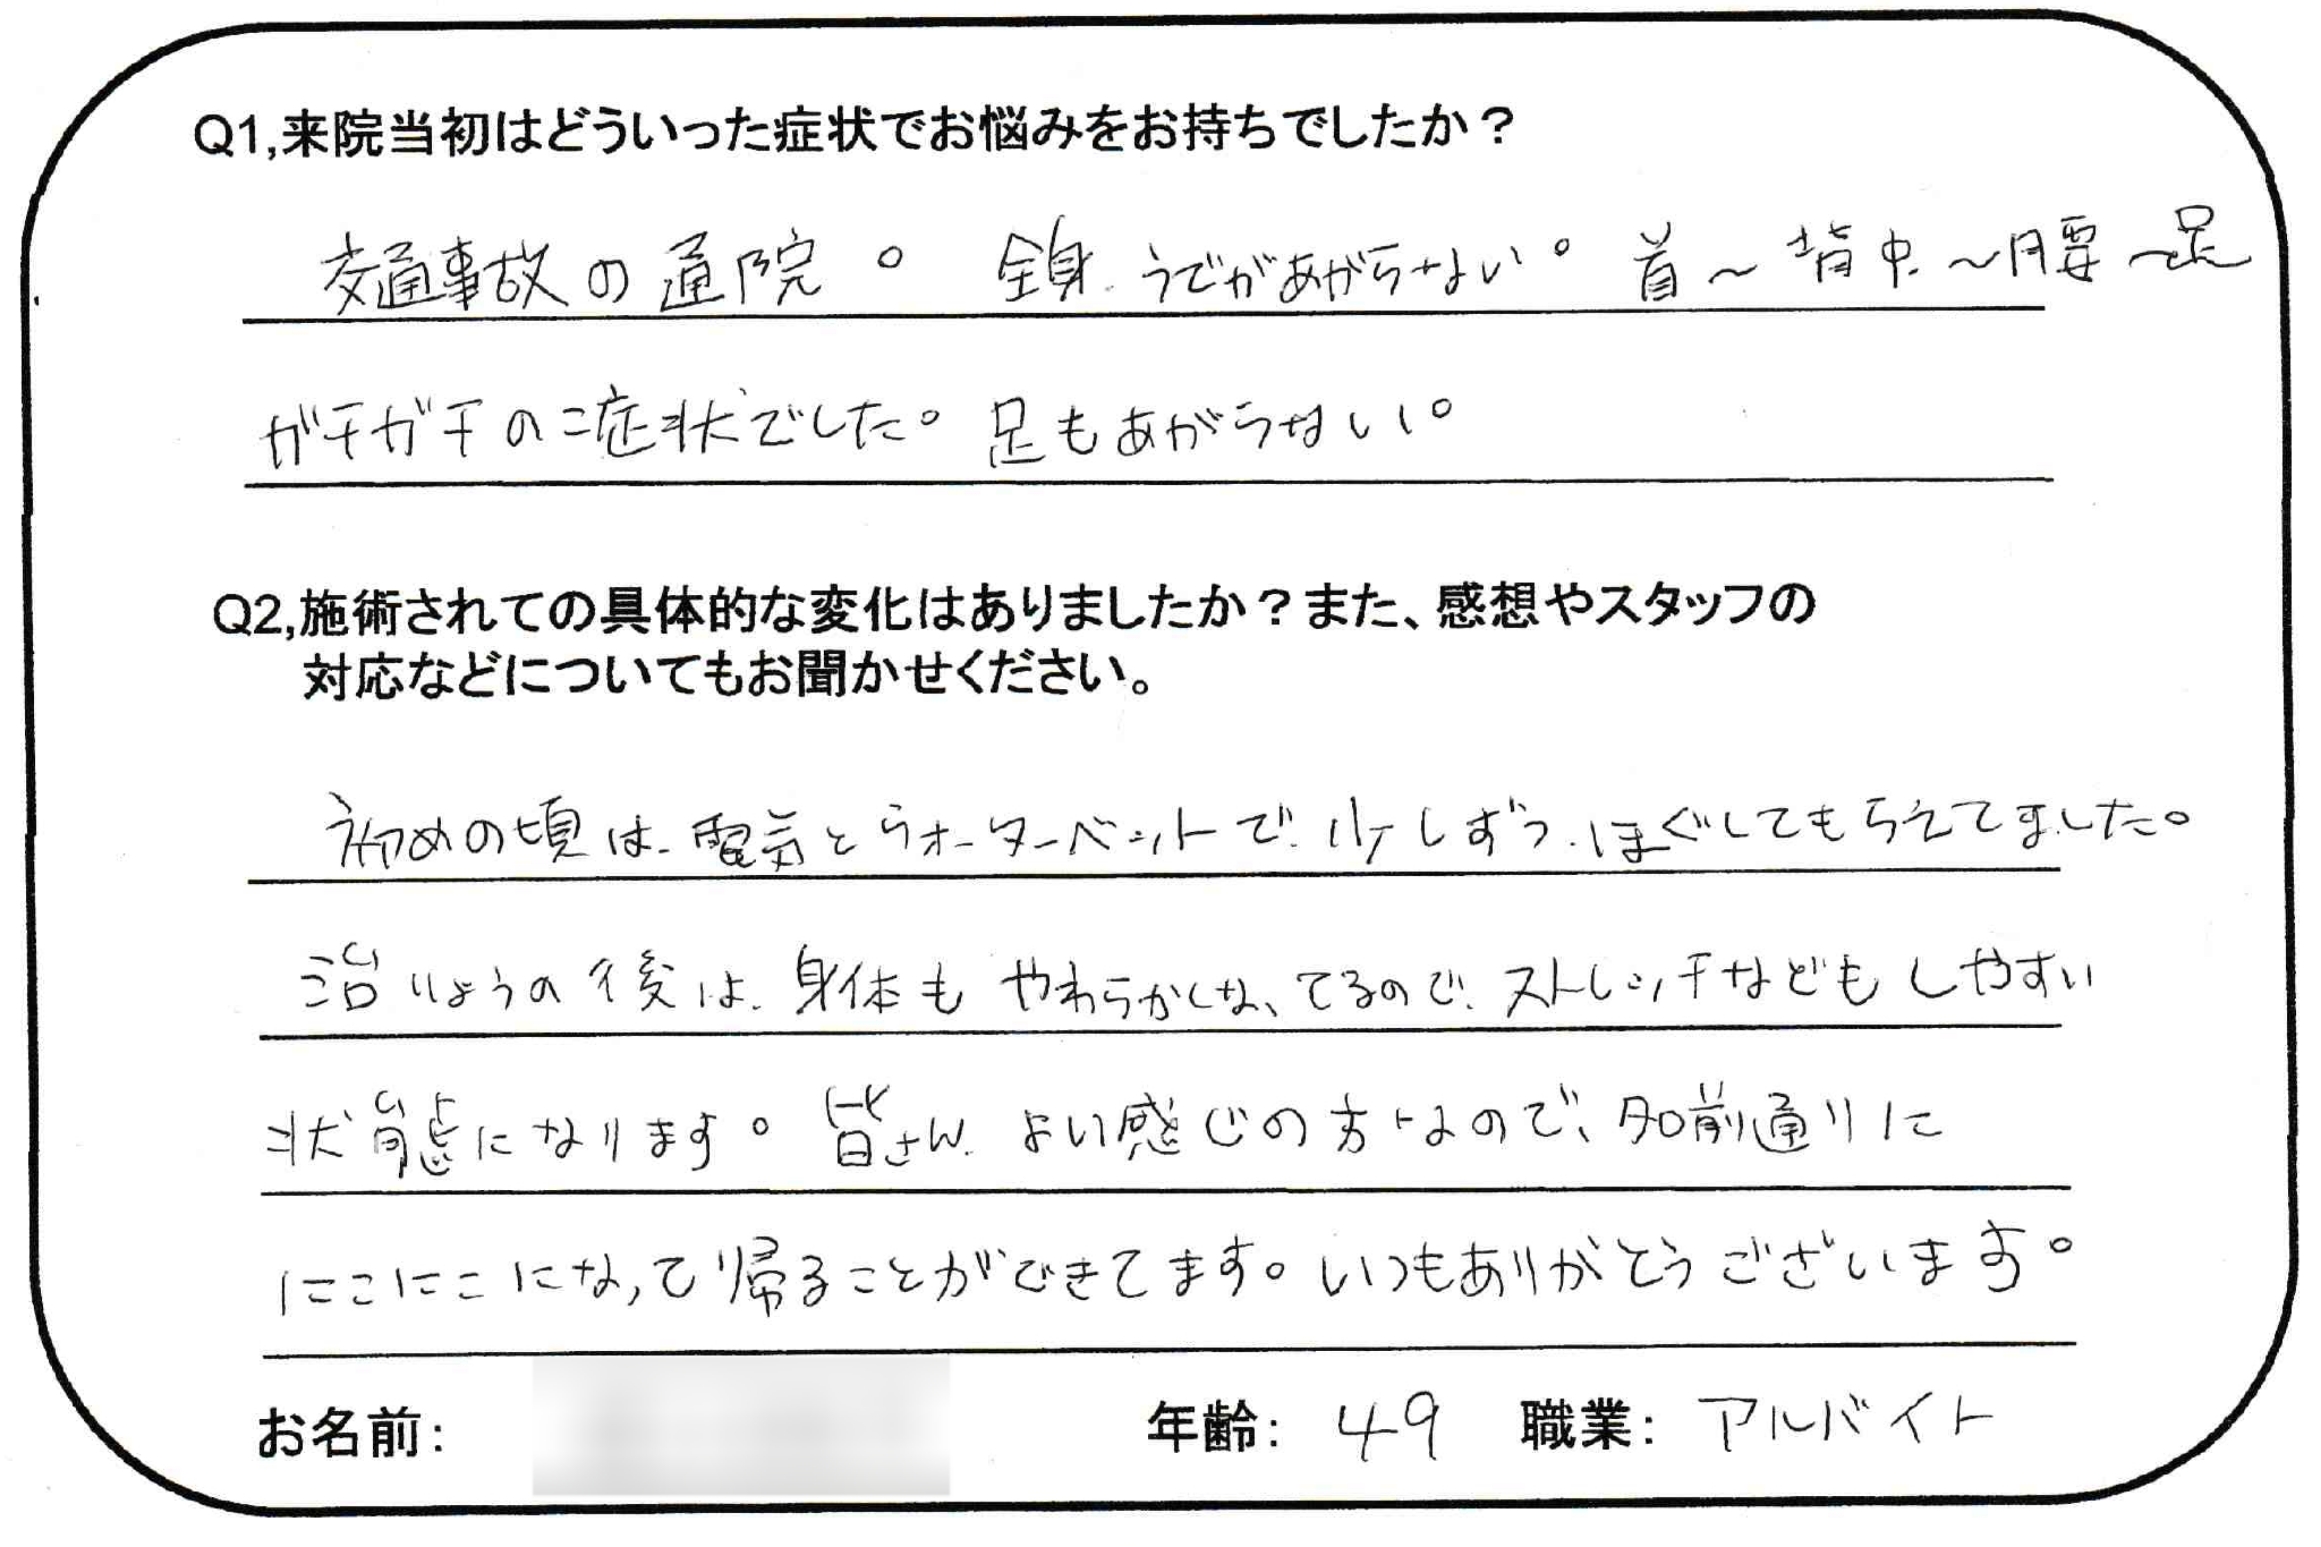 Q1,来院当初はどういった症状でお悩みをお持ちでしたか？
交通事故の通院。全身うでがあがらない。首～背中～腰～足
ガチガチの症状でした。足もあがらない。
Q2,施術されての具体的な変化はありましたか？また、感想やスタッフの
対応などについてもお聞かせください。
初めの頃は、電気とウォーターベットで、少しずつ、ほぐしてもらえてました。
治りょうの後は、身体もやわらかくなってるので、ストレッチなどもしやすい
状態になります。皆さんよい感じの方なので、名前通りに
にこにこになって帰ることができてます。いつもありがとうございます。
お名前: 年齢: 49 職業: アルバイト